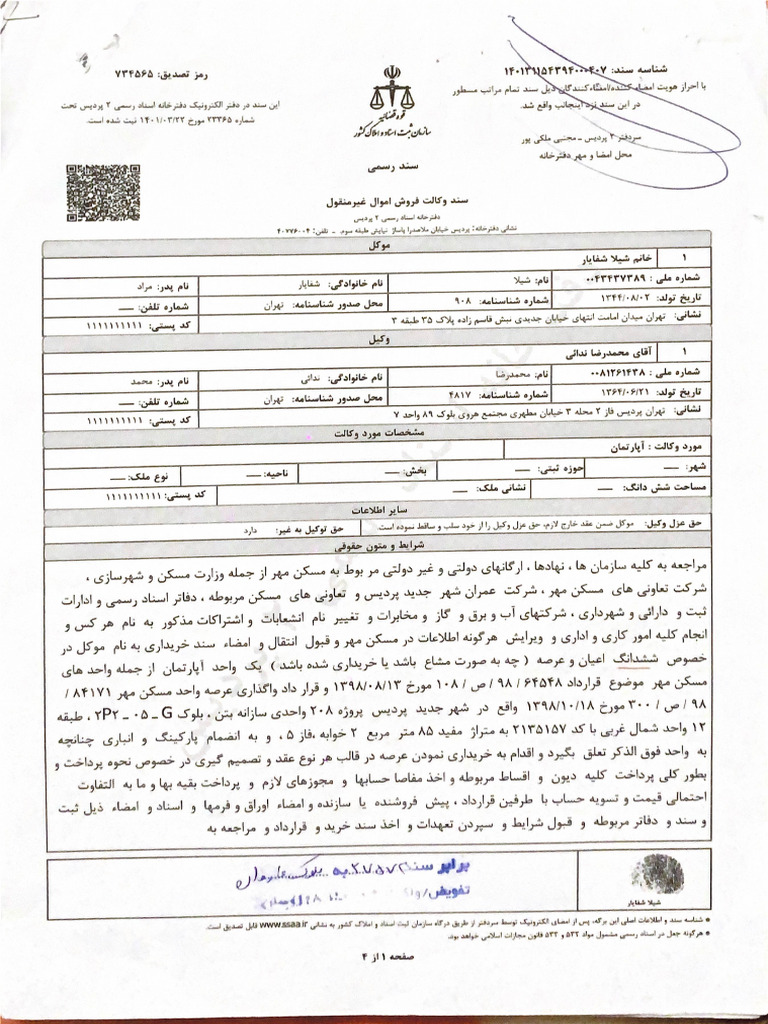 شناسه سند: ۱۴۰۱۳۱۱۵۴۳۹۴۰۰۰۴۰۷
با احراز هویت امضاء کننده/امضاء کنندگان ذیل سند تمام مراتب مسطور
در این سند نزد اینجانب واقع شد.
سردفتر ۲ پردیس - مجتبی ملکی پور
محل امضا و مهر دفترخانه
قوه قضائیه
سازمان ثبت اسناد و املاک کشور
سند رسمی
رمز تصدیق: ۷۳۴۵۶۵
این سند در دفتر الکترونیک دفترخانه اسناد رسمی ۲ پردیس تحت
شماره ۲۳۳۶۵ مورخ ۱۴۰۱/۰۳/۲۲ ثبت شده است.
سند وکالت فروش اموال غیرمنقول
دفترخانه اسناد رسمی ۲ پردیس
نشانی دفترخانه: پردیس خیابان ملاصدرا پاساژ نیایش طبقه سوم. - تلفن: ۴۰۷۷۶۰۰۴
موکل
۱ خانم شیلا شفایار
شماره ملی : ۰۰۴۳۴۳۷۳۸۹ نام: شیلا نام خانوادگی: شفایار نام پدر: مراد
تاریخ تولد: ۱۳۴۴/۰۸/۰۲ شماره شناسنامه: ۹۰۸ محل صدور شناسنامه: تهران شماره تلفن: ---
نشانی: تهران میدان امامت انتهای خیابان جدیدی نبش قاسم زاده پلاک ۳۵ طبقه ۳ کد پستی: ۱۱۱۱۱۱۱۱۱۱
وکیل
۱ آقای محمدرضا ندائی
شماره ملی : ۰۰۸۱۲۶۱۴۳۸ نام: محمدرضا نام خانوادگی: ندائی نام پدر: محمد
تاریخ تولد: ۱۳۶۴/۰۶/۲۱ شماره شناسنامه: ۴۸۱۷ محل صدور شناسنامه: تهران شماره تلفن: ---
نشانی: تهران پردیس فاز ۲ محله ۳ خیابان مطهری مجتمع هروی بلوک ۸۹ واحد ۷ کد پستی: ۱۱۱۱۱۱۱۱۱۱
مشخصات مورد وکالت
مورد وکالت : آپارتمان
شهر: --- حوزه ثبتی: --- بخش: --- ناحیه: --- نوع ملک: ---
مساحت شش دانگ: --- نشانی ملک: --- کد پستی: ۱۱۱۱۱۱۱۱۱۱
سایر اطلاعات
حق عزل وکیل: موکل ضمن عقد خارج لازم، حق عزل وکیل را از خود سلب و ساقط نموده است حق توکیل به غیر: دارد
شرایط و متون حقوقی
مراجعه به کلیه سازمان ها ، نهادها، ارگانهای دولتی و غیر دولتی مربوط به مسکن مهر از جمله وزارت مسکن و شهرسازی ،
شرکت تعاونی های مسکن مهر ، شرکت عمران شهر جدید پردیس و تعاونی های مسکن مربوطه ، دفاتر اسناد رسمی و ادارات
ثبت و دارائی و شهرداری ، شرکتهای آب و برق و گاز و مخابرات و تغییر نام انشعابات و اشتراکات مذکور به نام هر کس و
انجام کلیه امور کاری و اداری و ویرایش هرگونه اطلاعات در مسکن مهر و قبول انتقال و امضاء سند خریداری به نام موکل در
خصوص ششدانگ اعیان و عرصه ( چه به صورت مشاع باشد یا خریداری شده باشد ) یک واحد آپارتمان از جمله واحد های
مسکن مهر موضوع قرارداد ۶۴۵۴۸ / ۹۸ / ص / ۱۰۸ مورخ ۱۳۹۸/۰۸/۱۳ و قرار داد واگذاری عرصه واحد مسکن مهر ۸۴۱۷۱ /
۹۸ / ص / ۳۰۰ مورخ ۱۳۹۸/۱۰/۱۸ واقع در شهر جدید پردیس پروژه ۲۰۸ واحدی سازانه بتن ، بلوک G - ۰۵ - ۲P۲ ، طبقه
۱۲ واحد شمال غربی با کد ۲۱۳۵۱۵۷ به متراژ مفید ۸۵ متر مربع ۲ خوابه ،فاز ۵ ، و به انضمام پارکینگ و انباری چنانچه
به واحد فوق الذکر تعلق بگیرد و اقدام به خریداری نمودن عرصه در قالب هر نوع عقد و تصمیم گیری در خصوص نحوه پرداخت و
بطور کلی پرداخت کلیه دیون و اقساط مربوطه و اخذ مفاصا حسابها و مجوزهای لازم و پرداخت بقیه بها و ما به التفاوت
احتمالی قیمت و تسویه حساب با طرفین قرارداد ، پیش فروشنده یا سازنده و امضاء اوراق و فرمها و اسناد و امضاء ذیل ثبت
و سند و دفاتر مربوطه و قبول شرایط و سپردن تعهدات و اخذ سند خرید و قرارداد و مراجعه به
شیلا شفایار
برابر سند
تفویض
* شناسه سند و اطلاعات اصلی این برگه، پس از امضای الکترونیک توسط سردفتر از طریق درگاه سازمان ثبت اسناد و املاک کشور به نشانی www.ssaa.ir قابل تصدیق است.
* هرگونه جعل در اسناد رسمی مشمول مواد ۵۳۲ و ۵۳۳ قانون مجازات اسلامی خواهد بود.
صفحه ۱ از ۴